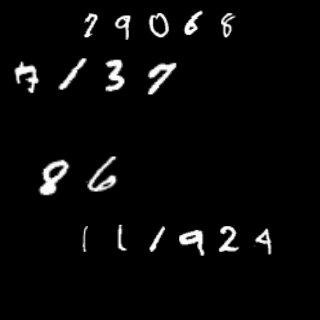 79068
7137
86
111924